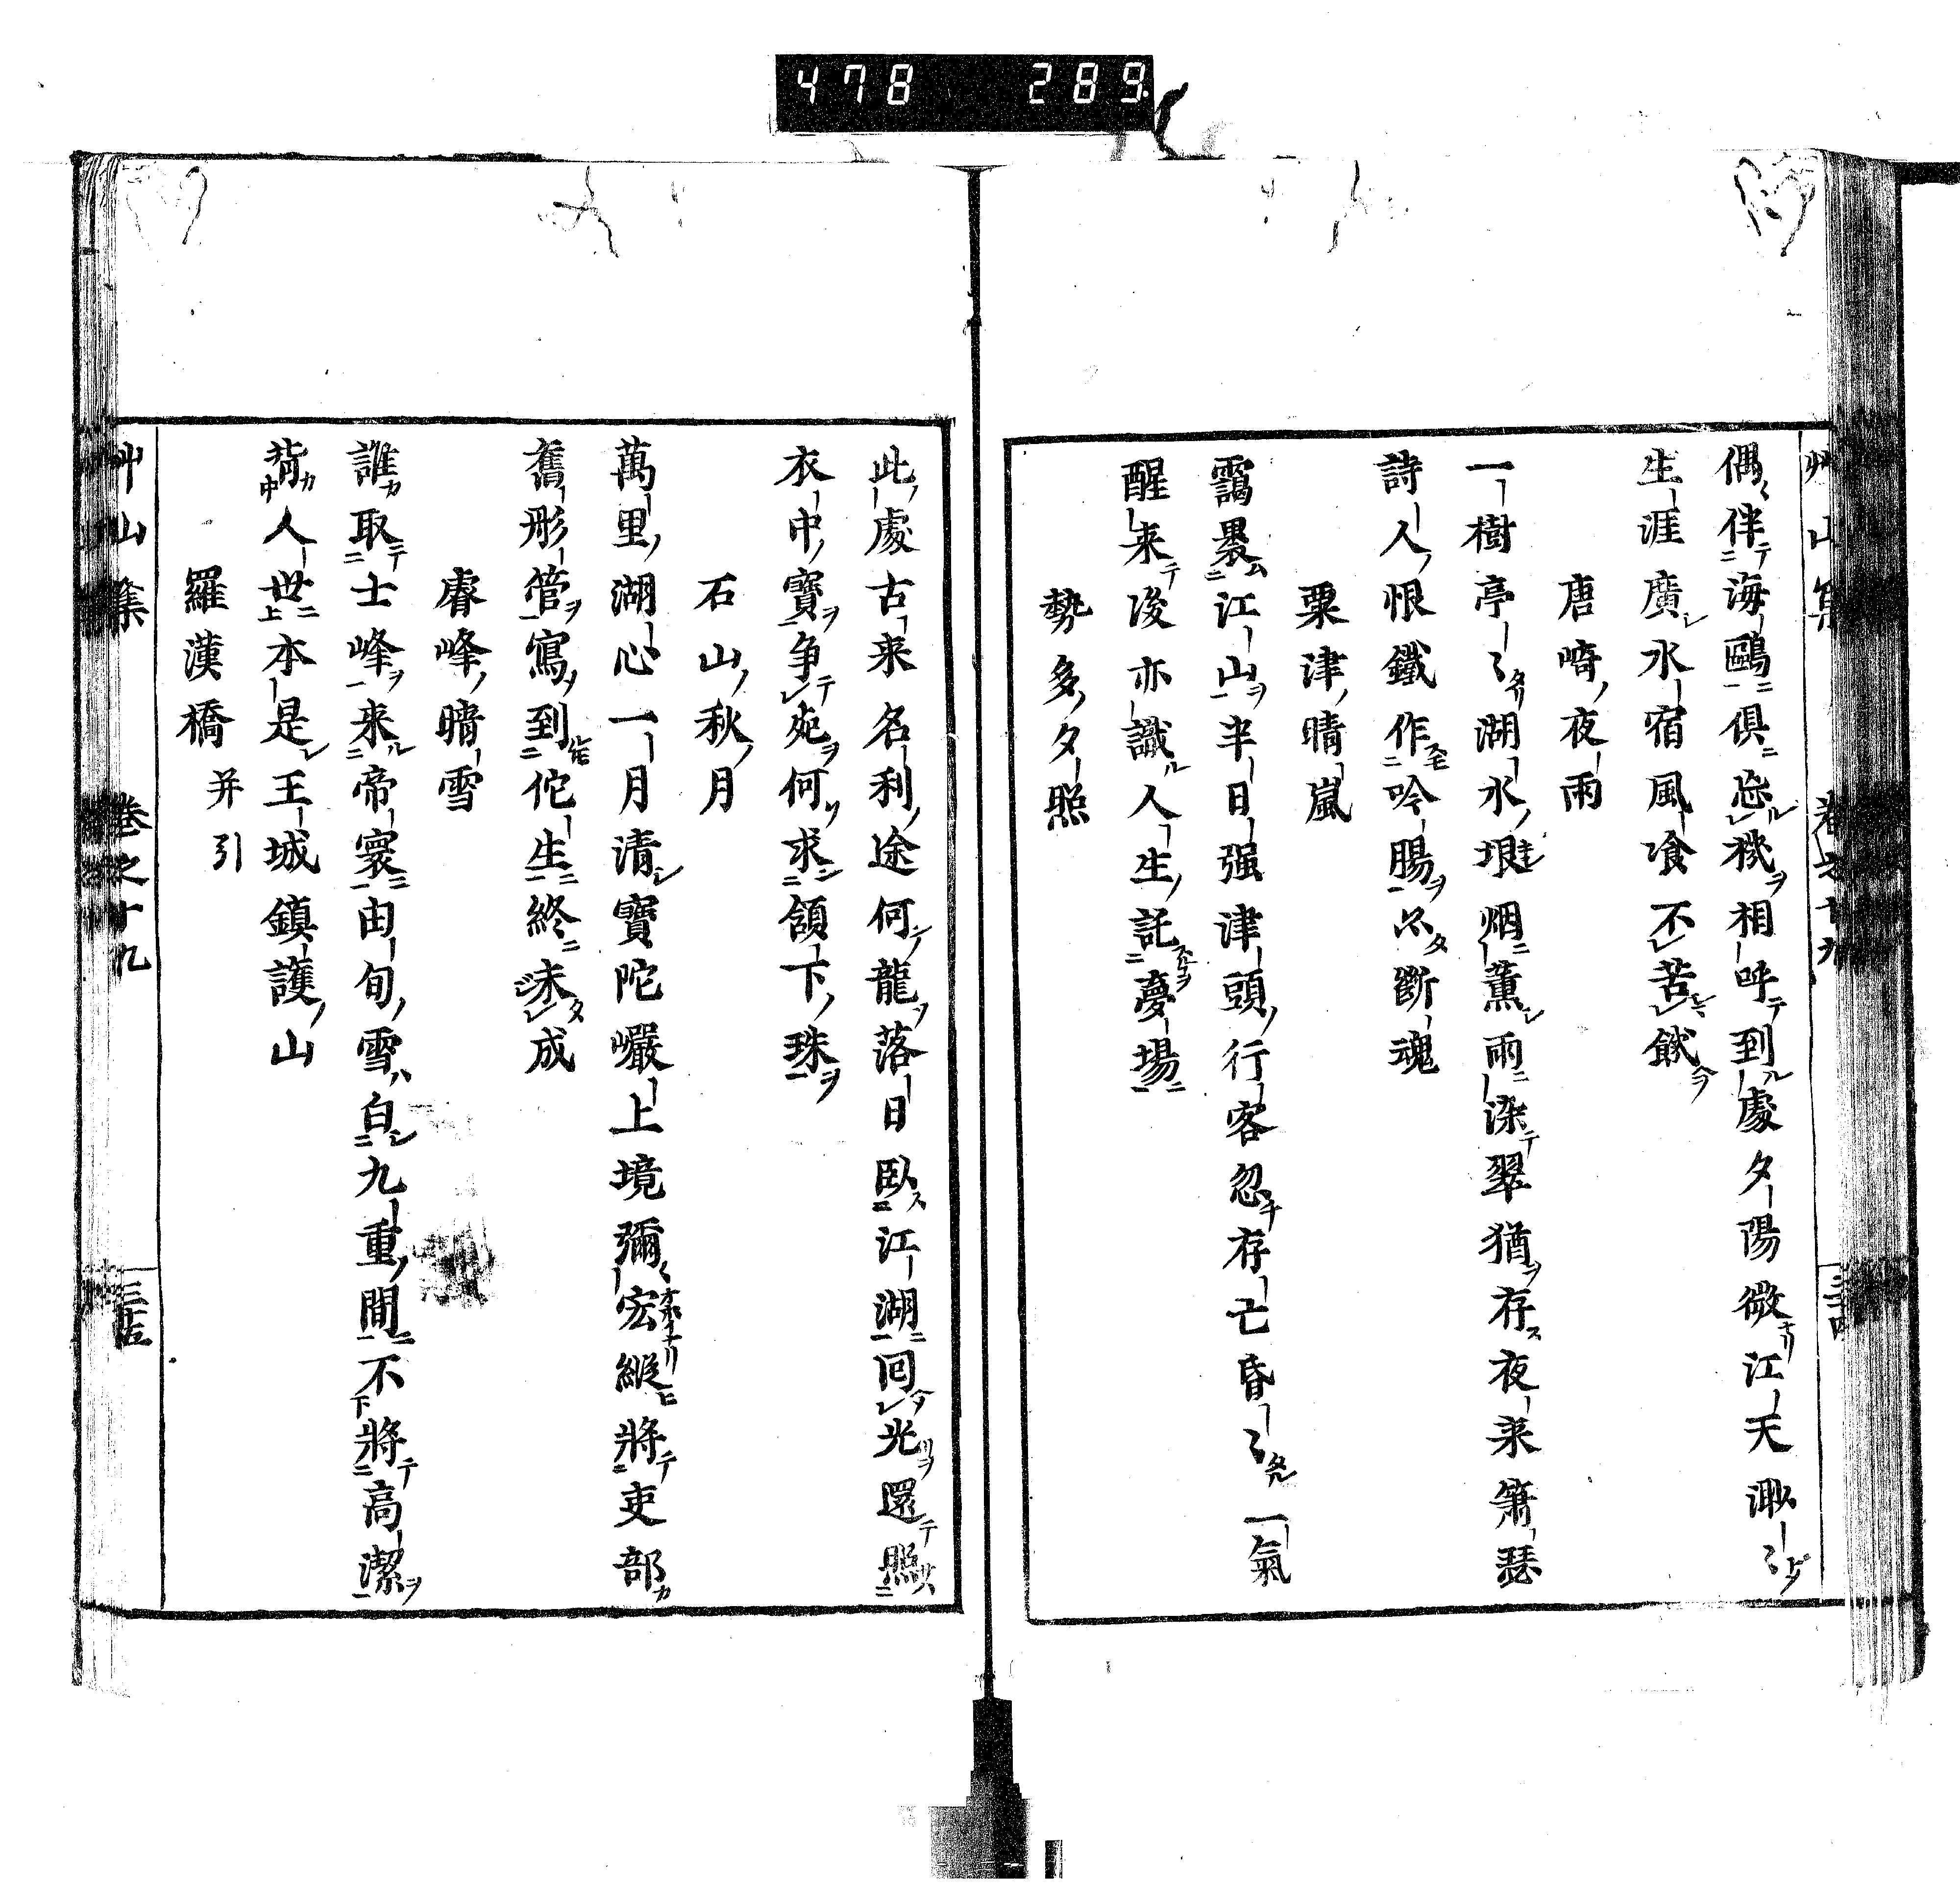 478 289
艸山集 卷之十九 三十四
偶伴海鷗俱忘機相呼到處夕陽微江天渺〻
生涯廣水宿風飡不苦餓
唐﨑夜雨
一樹亭〻湖水垠烟薰雨染翠猶存夜来箫瑟
詩人恨鐵作吟腸只斷魂
粟津晴嵐
靄褁江山半日强津頭行客忽存亡昏〻一氣
醒来後亦識人生託夢場
勢多夕照
此處古来名利途何龍落日臥江湖囘光還照
衣中寶争宛何求頷下珠
石山秋月
萬里湖心一月清寶陀巖上境彌宏縱將吏部
舊彤管寫到佗生終未成
睿峰晴雪
誰取士峰來帝寰由旬雪白九重間不將高潔
背人世本是王城鎮護山
羅漢橋 并引
艸山集 卷之十九 三十五